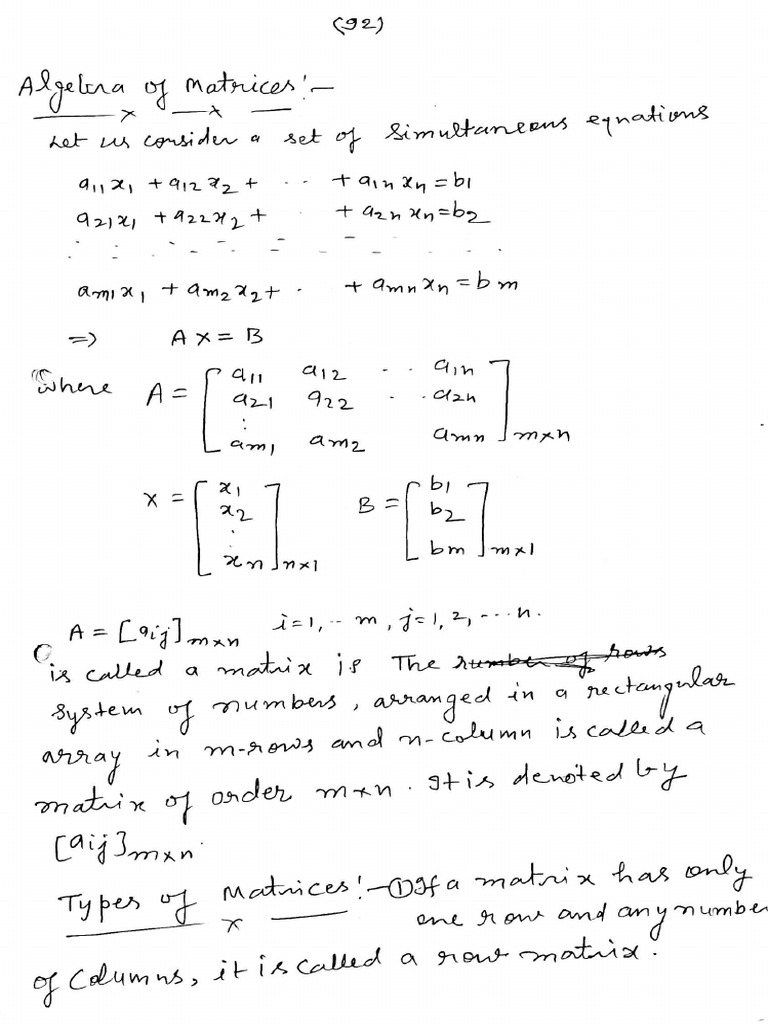 (92)
Algebra of Matrices:-
Let us consider a set of simultaneous equations
a11x1 + a12x2 + .. + a1nxn = b1
a21x1 + a22x2 + . + a2nxn = b2
am1x1 + am2x2 + . + amnxn = bm
=> AX = B
where A = [a11 a12 .. a1n
a21 a22 .. a2n
:
am1 am2 amn] m×n
X = [x1 x2 : xn] n×1 B = [b1 b2 bm] m×1
A = [aij] m×n i=1, .. m, j=1, 2, ... n.
is called a matrix is The number of rows
system of numbers, arranged in a rectangular
array in m-rows and n-column is called a
matrix of order m×n. It is denoted by
[aij] m×n.
Types of Matrices:- ① If a matrix has only
one row and any number
of columns, it is called a row matrix.